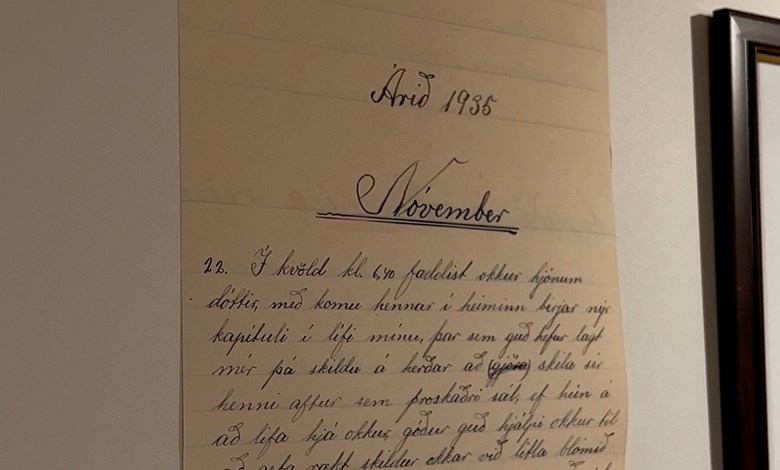 Árið 1935
Nóvember
22. Í kvöld kl. 6,40 faddist okkur hjónum
dóttir, með komu hennar í heiminn birjar nýr
kapituli í lífi mínu, þar sem guð hefur lagt
mér þá skildu á herðar að (gjöra) skila sér
henni aftur sem þroskaðri sál, ef hún á
að lifa hjá okkur, góður guð hjálpi okkur til
að gefa rækt skildur okkar við litla blómið